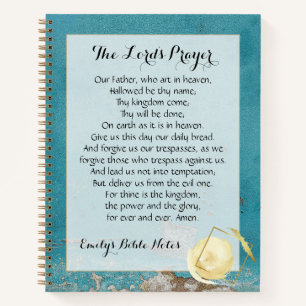 The Lord's Prayer
Our Father, who art in heaven,
Hallowed be thy name;
Thy kingdom come;
Thy will be done;
On earth as it is in heaven.
Give us this day our daily bread.
And forgive us our trespasses, as we
forgive those who trespass against us.
And lead us not into temptation;
But deliver us from the evil one.
For thine is the kingdom,
the power and the glory,
for ever and ever. Amen.
Emelys Bible Notes